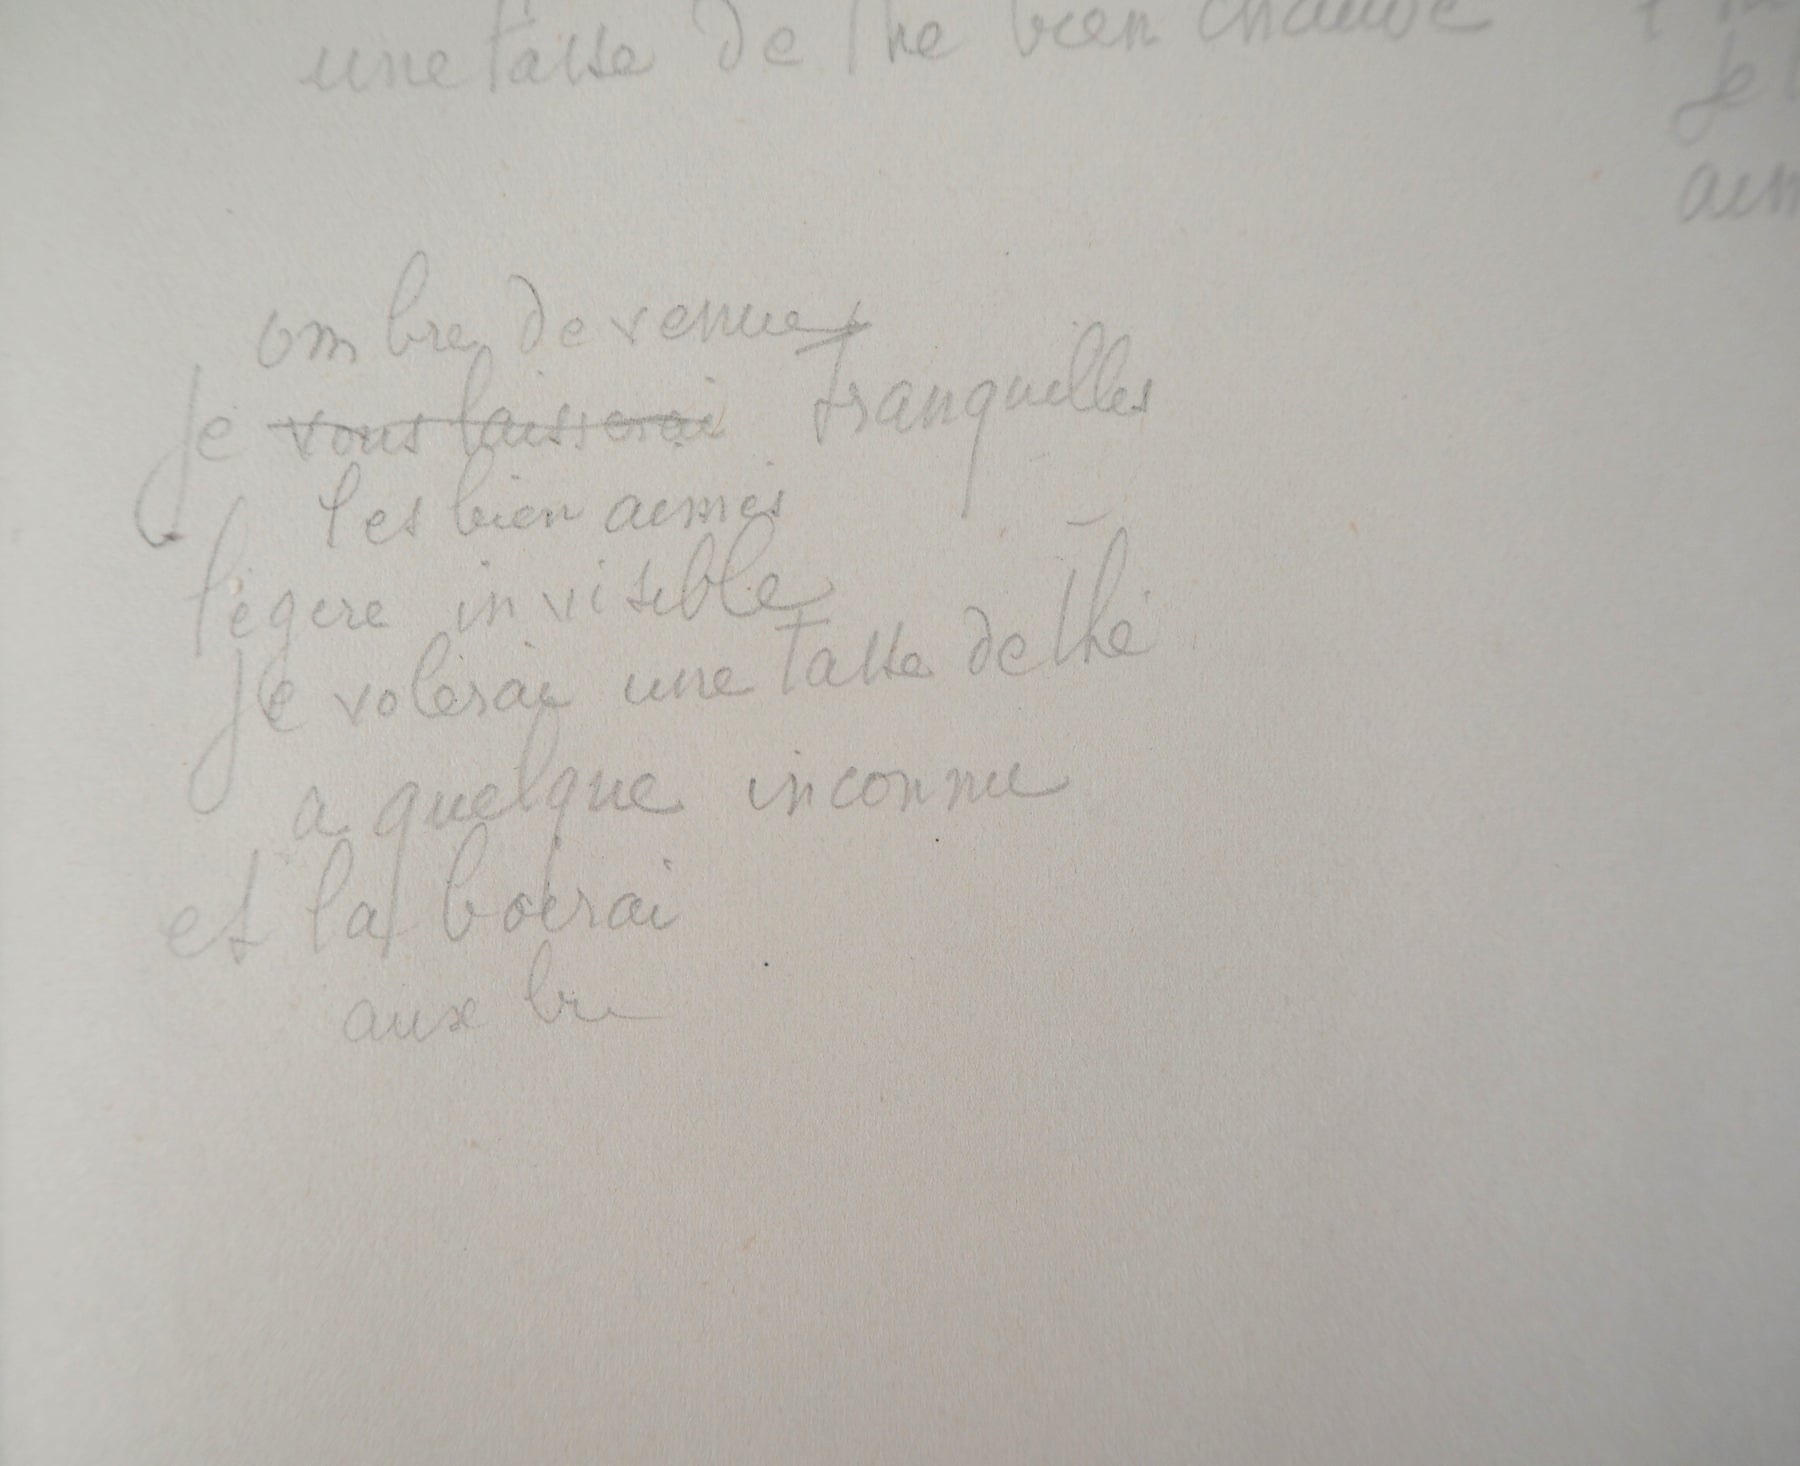 une tasse de the bien chaude
je
ombre devenue
Je vous laisserai tranquilles
les bien aimés
légère invisible
Je volerai une tasse de thé
a quelque inconnu
et la boirai
aux